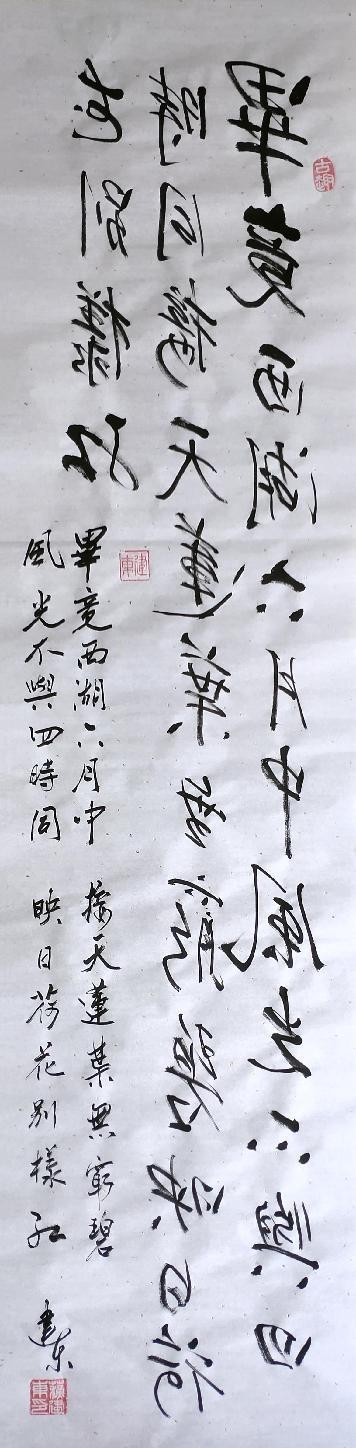 古趣
畢竟西湖六月中風光不與四
時同接天蓮葉無窮碧映日荷
花別樣紅
建東
畢竟西湖六月中 接天蓮葉無窮碧
風光不與四時同 映日荷花別樣紅
建东